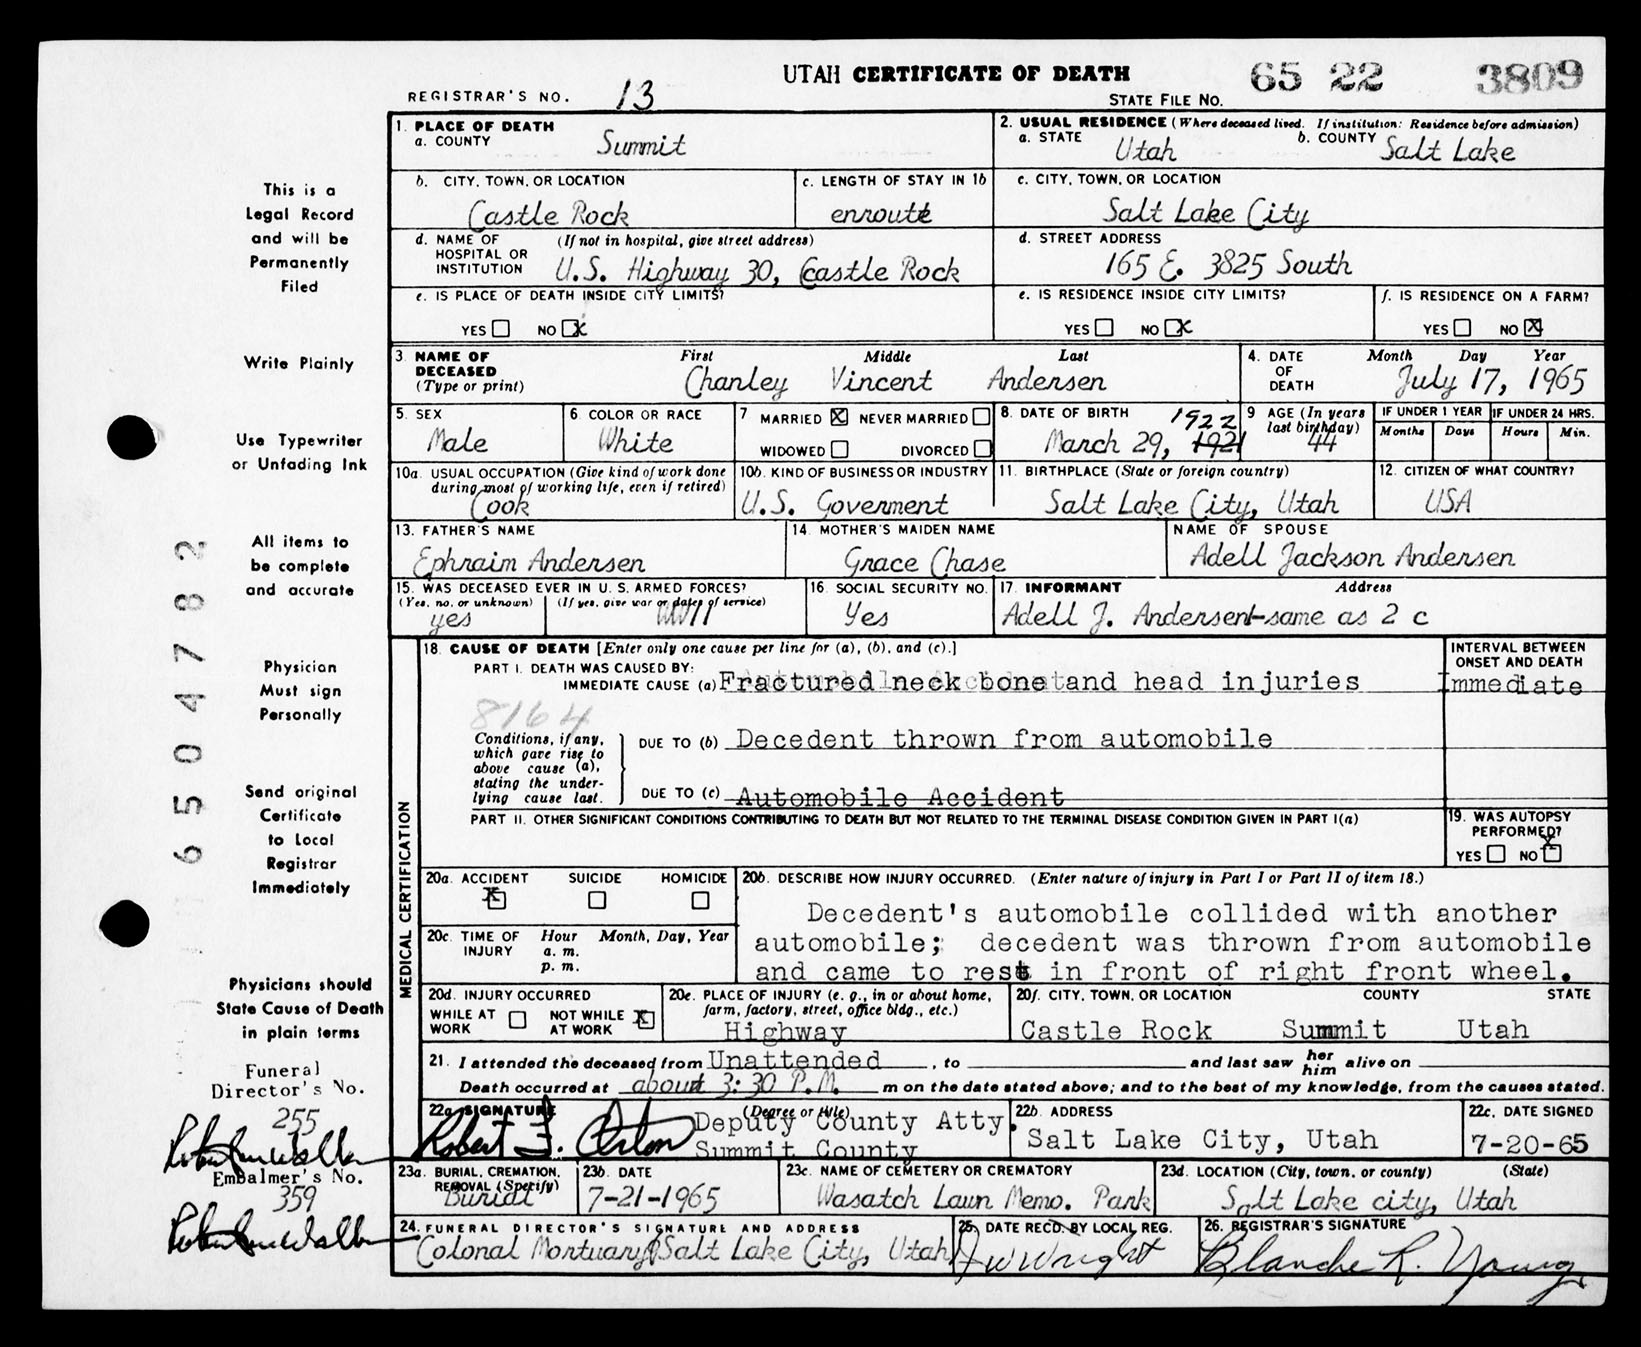 UTAH CERTIFICATE OF DEATH 65 22 3809
REGISTRAR'S NO. 13 STATE FILE NO.
1. PLACE OF DEATH
a. COUNTY Summit
2. USUAL RESIDENCE (Where deceased lived. If institution: Residence before admission)
a. STATE Utah b. COUNTY Salt Lake
b. CITY, TOWN, OR LOCATION Castle Rock
c. LENGTH OF STAY IN 1b enroute
c. CITY, TOWN, OR LOCATION Salt Lake City
d. NAME OF HOSPITAL OR INSTITUTION (If not in hospital, give street address) U.S. Highway 30, Castle Rock
d. STREET ADDRESS 165 E. 3825 South
e. IS PLACE OF DEATH INSIDE CITY LIMITS? YES NO X
e. IS RESIDENCE INSIDE CITY LIMITS? YES NO X
f. IS RESIDENCE ON A FARM? YES NO X
3. NAME OF DECEASED (Type or print) First Middle Last
Chanley Vincent Andersen
4. DATE OF DEATH Month Day Year
July 17, 1965
5. SEX Male
6. COLOR OR RACE White
7 MARRIED X NEVER MARRIED
WIDOWED DIVORCED
8. DATE OF BIRTH 1922
March 29, 1921
9 AGE (In years last birthday) 44
IF UNDER 1 YEAR Months Days
IF UNDER 24 HRS. Hours Min.
10a. USUAL OCCUPATION (Give kind of work done during most of working life, even if retired)
Cook
10b. KIND OF BUSINESS OR INDUSTRY
U.S. Goverment
11. BIRTHPLACE (State or foreign country)
Salt Lake City, Utah
12. CITIZEN OF WHAT COUNTRY?
USA
13. FATHER'S NAME
Ephraim Andersen
14. MOTHER'S MAIDEN NAME
Grace Chase
NAME OF SPOUSE
Adell Jackson Andersen
15. WAS DECEASED EVER IN U. S. ARMED FORCES?
(Yes, no, or unknown) (If yes, give war or dates of service)
yes WW11
16. SOCIAL SECURITY NO.
Yes
17. INFORMANT Address
Adell J. Andersen-same as 2 c
MEDICAL CERTIFICATION
18. CAUSE OF DEATH [Enter only one cause per line for (a), (b), and (c).]
PART I. DEATH WAS CAUSED BY:
IMMEDIATE CAUSE (a) Fractured neck bone and head injuries
INTERVAL BETWEEN ONSET AND DEATH
Immediate
8164
Conditions, if any, which gave rise to above cause (a), stating the underlying cause last.
DUE TO (b) Decedent thrown from automobile
DUE TO (c) Automobile Accident
PART II. OTHER SIGNIFICANT CONDITIONS CONTRIBUTING TO DEATH BUT NOT RELATED TO THE TERMINAL DISEASE CONDITION GIVEN IN PART I(a)
19. WAS AUTOPSY PERFORMED?
YES NO X
20a. ACCIDENT X SUICIDE HOMICIDE
20b. DESCRIBE HOW INJURY OCCURRED. (Enter nature of injury in Part I or Part II of item 18.)
Decedent's automobile collided with another
automobile; decedent was thrown from automobile
and came to rest in front of right front wheel.
20c. TIME OF INJURY Hour Month, Day, Year
a. m.
p. m.
20d. INJURY OCCURRED
WHILE AT WORK NOT WHILE AT WORK X
20e. PLACE OF INJURY (e. g., in or about home, farm, factory, street, office bldg., etc.)
Highway
20f. CITY, TOWN, OR LOCATION COUNTY STATE
Castle Rock Summit Utah
21. I attended the deceased from Unattended, to and last saw her him alive on
Death occurred at about 3:30 P.M. m on the date stated above; and to the best of my knowledge, from the causes stated.
22a SIGNATURE (Degree or title)
Robert F. Orton Deputy County Atty.
Summit County
22b. ADDRESS
Salt Lake City, Utah
22c. DATE SIGNED
7-20-65
23a. BURIAL, CREMATION, REMOVAL (Specify)
Burial
23b. DATE
7-21-1965
23c. NAME OF CEMETERY OR CREMATORY
Wasatch Lawn Memo. Park
23d. LOCATION (City, town, or county) (State)
Salt Lake City, Utah
24. FUNERAL DIRECTOR'S SIGNATURE AND ADDRESS
Colonal Mortuary Salt Lake City, Utah
25. DATE RECD. BY LOCAL REG.
W Wright
26. REGISTRAR'S SIGNATURE
Blanche R. Young
This is a
Legal Record
and will be
Permanently
Filed
Write Plainly
Use Typewriter
or Unfading Ink
All items to
be complete
and accurate
Physician
Must sign
Personally
Send original
Certificate
to Local
Registrar
Immediately
Physicians should
State Cause of Death
in plain terms
Funeral
Director's No.
255
Embalmer's No.
359
6504782